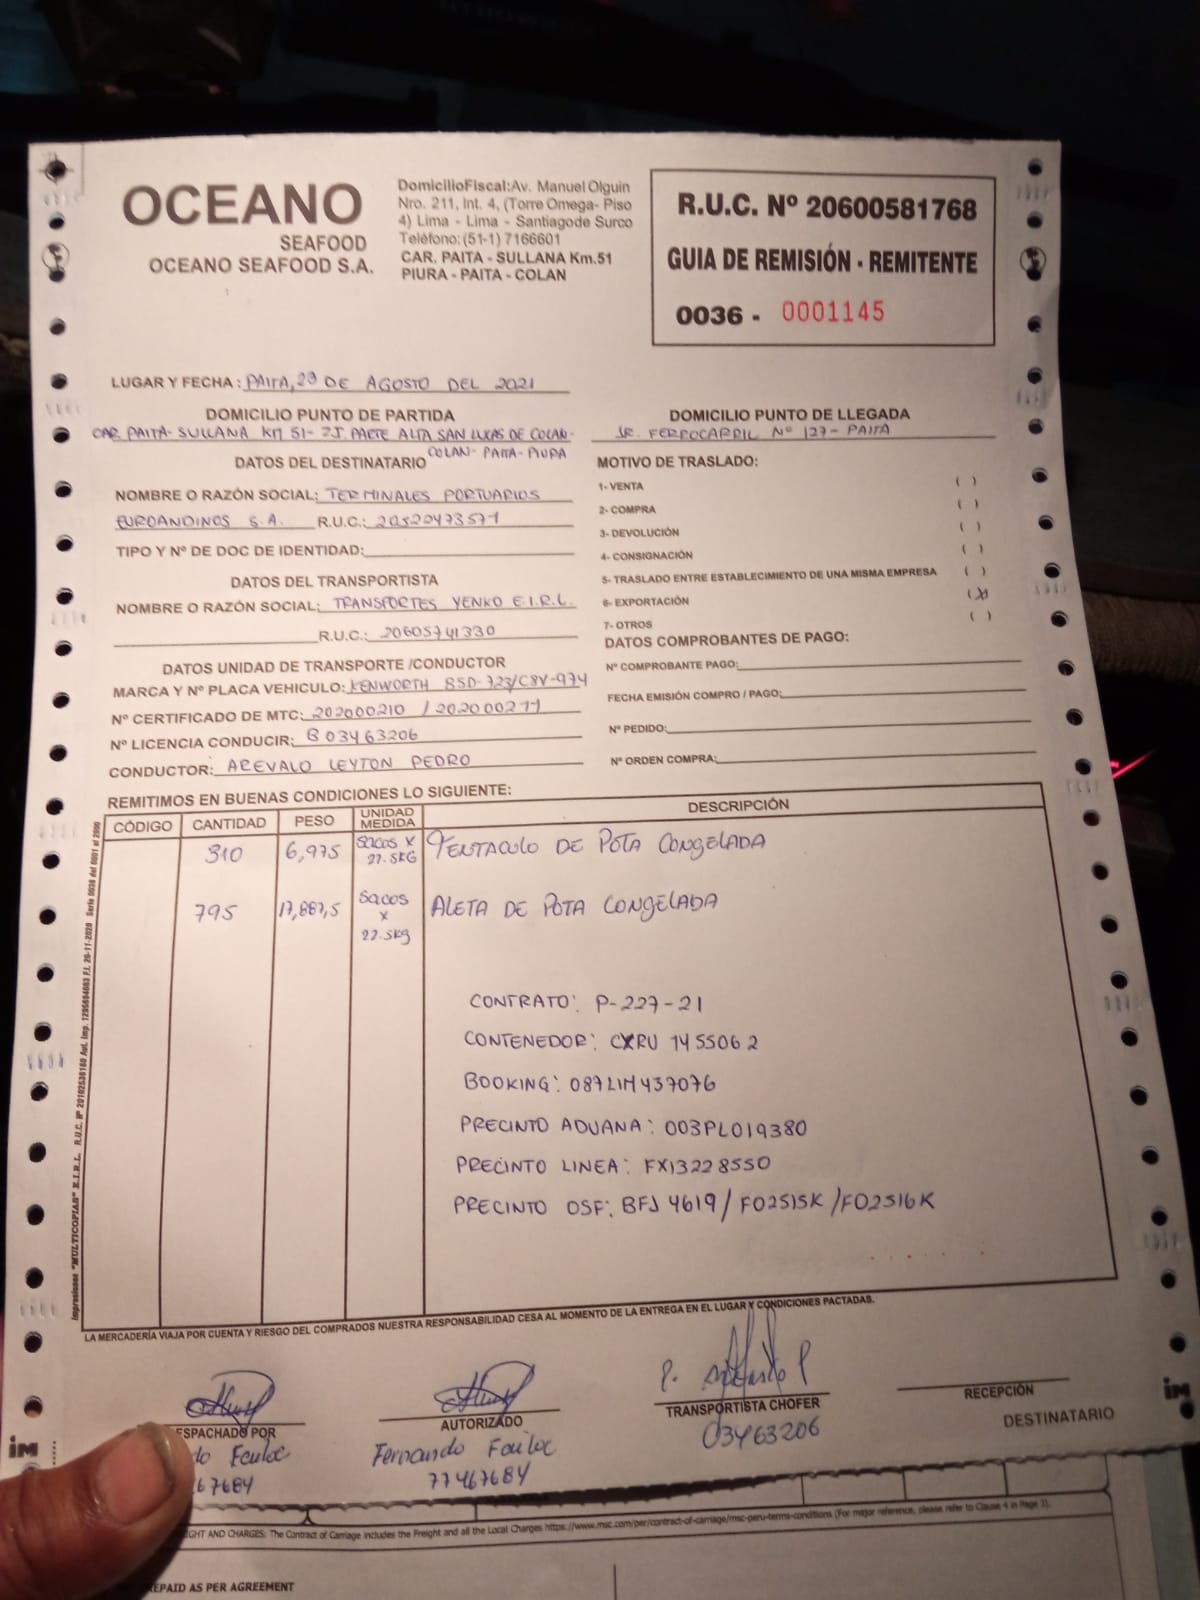 OCEANO
SEAFOOD
OCEANO SEAFOOD S.A.
DomicilioFiscal:Av. Manuel Olguin
Nro. 211, Int. 4, (Torre Omega- Piso
4) Lima - Lima - Santiagode Surco
Teléfono:(51-1) 7166601
CAR. PAITA - SULLANA Km.51
PIURA - PAITA - COLAN
R.U.C. Nº 20600581768
GUIA DE REMISIÓN - REMITENTE
0036 - 0001145
LUGAR Y FECHA : PAITA, 23 DE AGOSTO DEL 2021
DOMICILIO PUNTO DE PARTIDA
CAR. PAITA- SULLANA KM 51- ZI. PARTE ALTA SAN LUCAS DE COLAN-
COLAN- PAITA- PIURA
DOMICILIO PUNTO DE LLEGADA
JR. FERROCARRIL Nº 127- PAITA
DATOS DEL DESTINATARIO
NOMBRE O RAZÓN SOCIAL: TERMINALES PORTUARIOS
EUROANDINOS S.A. R.U.C.: 20520473571
TIPO Y Nº DE DOC DE IDENTIDAD:
DATOS DEL TRANSPORTISTA
NOMBRE O RAZÓN SOCIAL: TRANSPORTES YENKO E.I.R.L.
R.U.C.: 20605741330
DATOS UNIDAD DE TRANSPORTE /CONDUCTOR
MARCA Y Nº PLACA VEHICULO: KENWORTH BSD-723/C8V-974
Nº CERTIFICADO DE MTC: 202000210 / 202000211
Nº LICENCIA CONDUCIR: B 03463206
CONDUCTOR: AREVALO LEYTON PEDRO
MOTIVO DE TRASLADO:
1- VENTA ( )
2- COMPRA ( )
3- DEVOLUCIÓN ( )
4- CONSIGNACIÓN ( )
5- TRASLADO ENTRE ESTABLECIMIENTO DE UNA MISMA EMPRESA ( )
6- EXPORTACIÓN (X)
7- OTROS ( )
DATOS COMPROBANTES DE PAGO:
Nº COMPROBANTE PAGO:
FECHA EMISIÓN COMPRO / PAGO:
Nº PEDIDO:
Nº ORDEN COMPRA:
REMITIMOS EN BUENAS CONDICIONES LO SIGUIENTE:
CÓDIGO CANTIDAD PESO UNIDAD MEDIDA DESCRIPCIÓN
310 6,975 SACOS X 22.5KG TENTACULO DE POTA CONGELADA
795 17,887,5 SACOS X 22.5kg ALETA DE POTA CONGELADA
CONTRATO: P-227-21
CONTENEDOR: CXRU 145506 2
BOOKING: 087LIM437076
PRECINTO ADUANA: 003PL019380
PRECINTO LINEA: FX13228550
PRECINTO OSF: BFJ 4619 / FO2515K /FO2516K
Impresiones "MULTICOPIAS" E.I.R.L. R.U.C. Nº 20102536180 Aut. Imp. 1295894083 F.I. 26-11-2020 Serie 0036 del 0001 al 2000
LA MERCADERÍA VIAJA POR CUENTA Y RIESGO DEL COMPRADOS NUESTRA RESPONSABILIDAD CESA AL MOMENTO DE LA ENTREGA EN EL LUGAR Y CONDICIONES PACTADAS.
ESPACHADO POR
67684
AUTORIZADO
Fernando
77467684
TRANSPORTISTA CHOFER
03463206
RECEPCIÓN
DESTINATARIO
im
im
GHT AND CHARGES: The Contract of Carriage includes the Freight and all the Local Charges https://www.msc.com/per/contract-of-carriage/msc-peru-terms-conditions (For major reference, please refer to Clause 4 in Page 1).
EPAID AS PER AGREEMENT